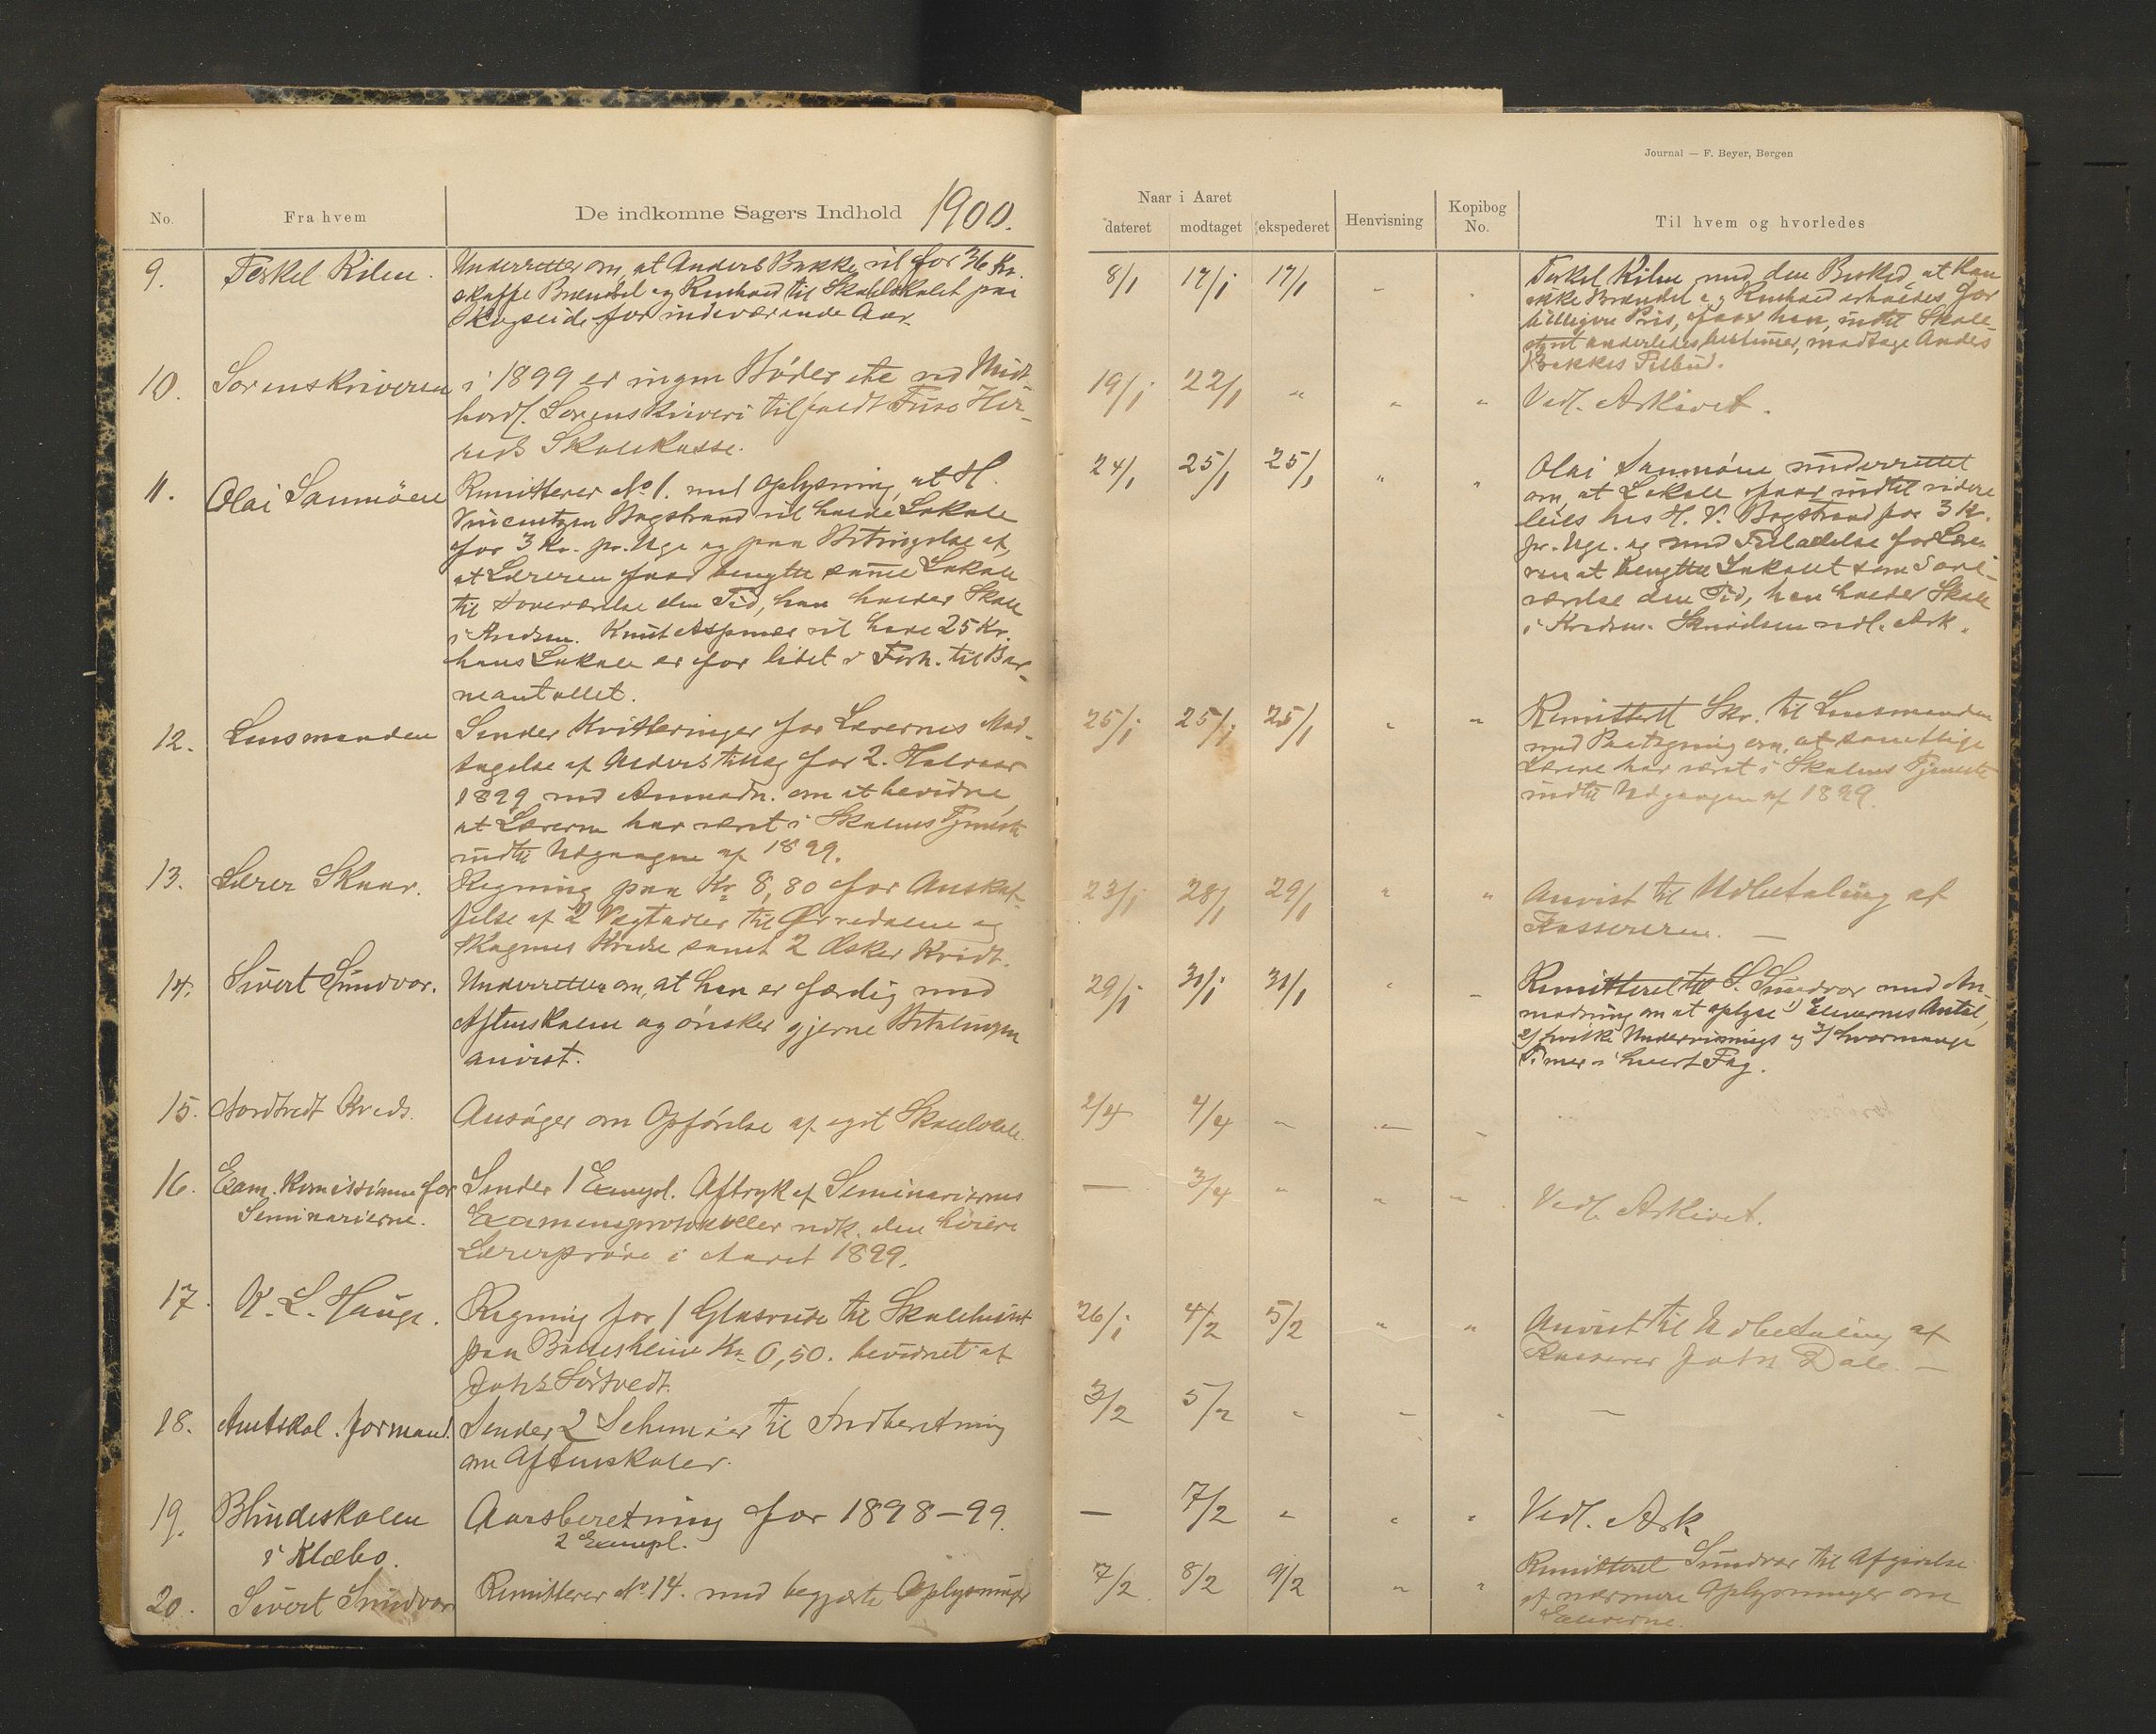 Journal — F. Beyer, Bergen
No. Fra hvem De indkomne Sagers Indhold 1900.
Naar i Aaret
dateret modtaget ekspederet Henvisning Kopibog No. Til hvem og hvorledes
9. Terkel Kilen.
Underretter om, at Anders Bakke vil for 36 Kr.
skaffe Brændsel og Renhold til Skolelokalet paa
Skogseide for indeværende Aar.
8/1 17/1 17/1
Terkel Kilen med den Besked, at kan
ikke Brændsel og Renhold erholdes for
billigere Pris, faar han, indtil Skole-
styret anderledes bestemmer, modtage Anders
Bakkes Tilbud.
10. Sorenskriveren
i 1899 er ingen Bøder etc ved Midt-
hordl. Sorenskriveri tilfaldt Fuse Her-
reds Skolekasse.
19/1 22/1 "
Vedl. Arkivet.
11. Olai Sanmöen
Remitterer No 1. med Oplysning, at H.
Vincentzen Bogstrand vil holde Lokale
for 3 Kr. pr. Uge og paa Betingelse af,
at Læreren faar benytte samme Lokale
til Soveværelse den Tid, han holder Skole
i Kredsen. Knut vil have 25 Kr.
hans Lokale er for lidet i Forh. til Bar-
neantallet.
24/1 25/1 25/1
Olai Sanmöen underrettet
om, at Lokale faar indtil videre
leies hos H. V. Bogstrand for 3 Kr.
pr. Uge. og med Tilladelse for Lære-
ren at benytte Lokalet som Sove-
værelse den Tid, han holder Skole
i Kredsen. Skrivelsen vedl. Ark.
12. Lensmanden
Sender Kvitteringer for Lærernes Mod-
tagelse af Alderstillæg for 2. Halvaar
1899 med Anmodn. om at bevidne,
at Lærerne har været i Skolens Tjeneste
indtil Udgangen af 1899.
25/1 25/1 25/1
Remitteret Skr. til Lensmanden
med Paategning om, at samtlige
Lærere har været i Skolens Tjeneste
indtil Udgangen af 1899.
13. Lærer Skaar.
Regning paa Kr 8,80 for Anskaf-
felse af 2 Vægtavler til Øvredalene og
Skognes Kredse samt 2 Æsker Kridt.
23/1 28/1 29/1
Anvist til Udbetaling af
Kassereren. —
14. Sivert Sundvor.
Underretter om, at han er færdig med
Aftenskolen og ønsker gjerne Betalingen
anvist.
29/1 31/1 31/1
Remitteret til S. Sundvor med An-
modning om at oplyse 1) Elevernes Antal,
2) hvilke Undervisnings og 3) hvormange
Timer i hvert Fag.
15. Nordtvedt Kreds.
Ansøger om Opførelse af eget Skolelokale.
2/4 4/4
16. Exam. Komissionen for
Seminarierne.
Sender 1 Exempl. Aftryk af Seminariernes
Examensprotokoller vedk. den høiere
Lærerprøve i Aaret 1899.
— 3/4 "
Vedl. Arkivet.
17. K. L. Hauge.
Regning for 1 Glasrude til Skolehuset
paa Bolesheim Kr 0,50. bevidnet af
Johs Sørtvedt.
26/1 4/2 5/2
Anvist til Udbetaling af
Kasserer Johs Dale. —
18. Amtskol. formand.
Sender 2 Schemaer til Indberetning
om Aftenskoler.
3/2 5/2
—
19. Blindeskolen
i Klæbo.
Aarsberetning for 1898–99.
2 Exempl.
— 7/2 "
Vedl. Ark
20. Sivert Sundvor
Remitterer No 14. med begjærte Oplysninger
7/2 8/2 9/2
Remitteret Sundvor til Afgivelse
af nærmere Oplysninger om
Eleverne.